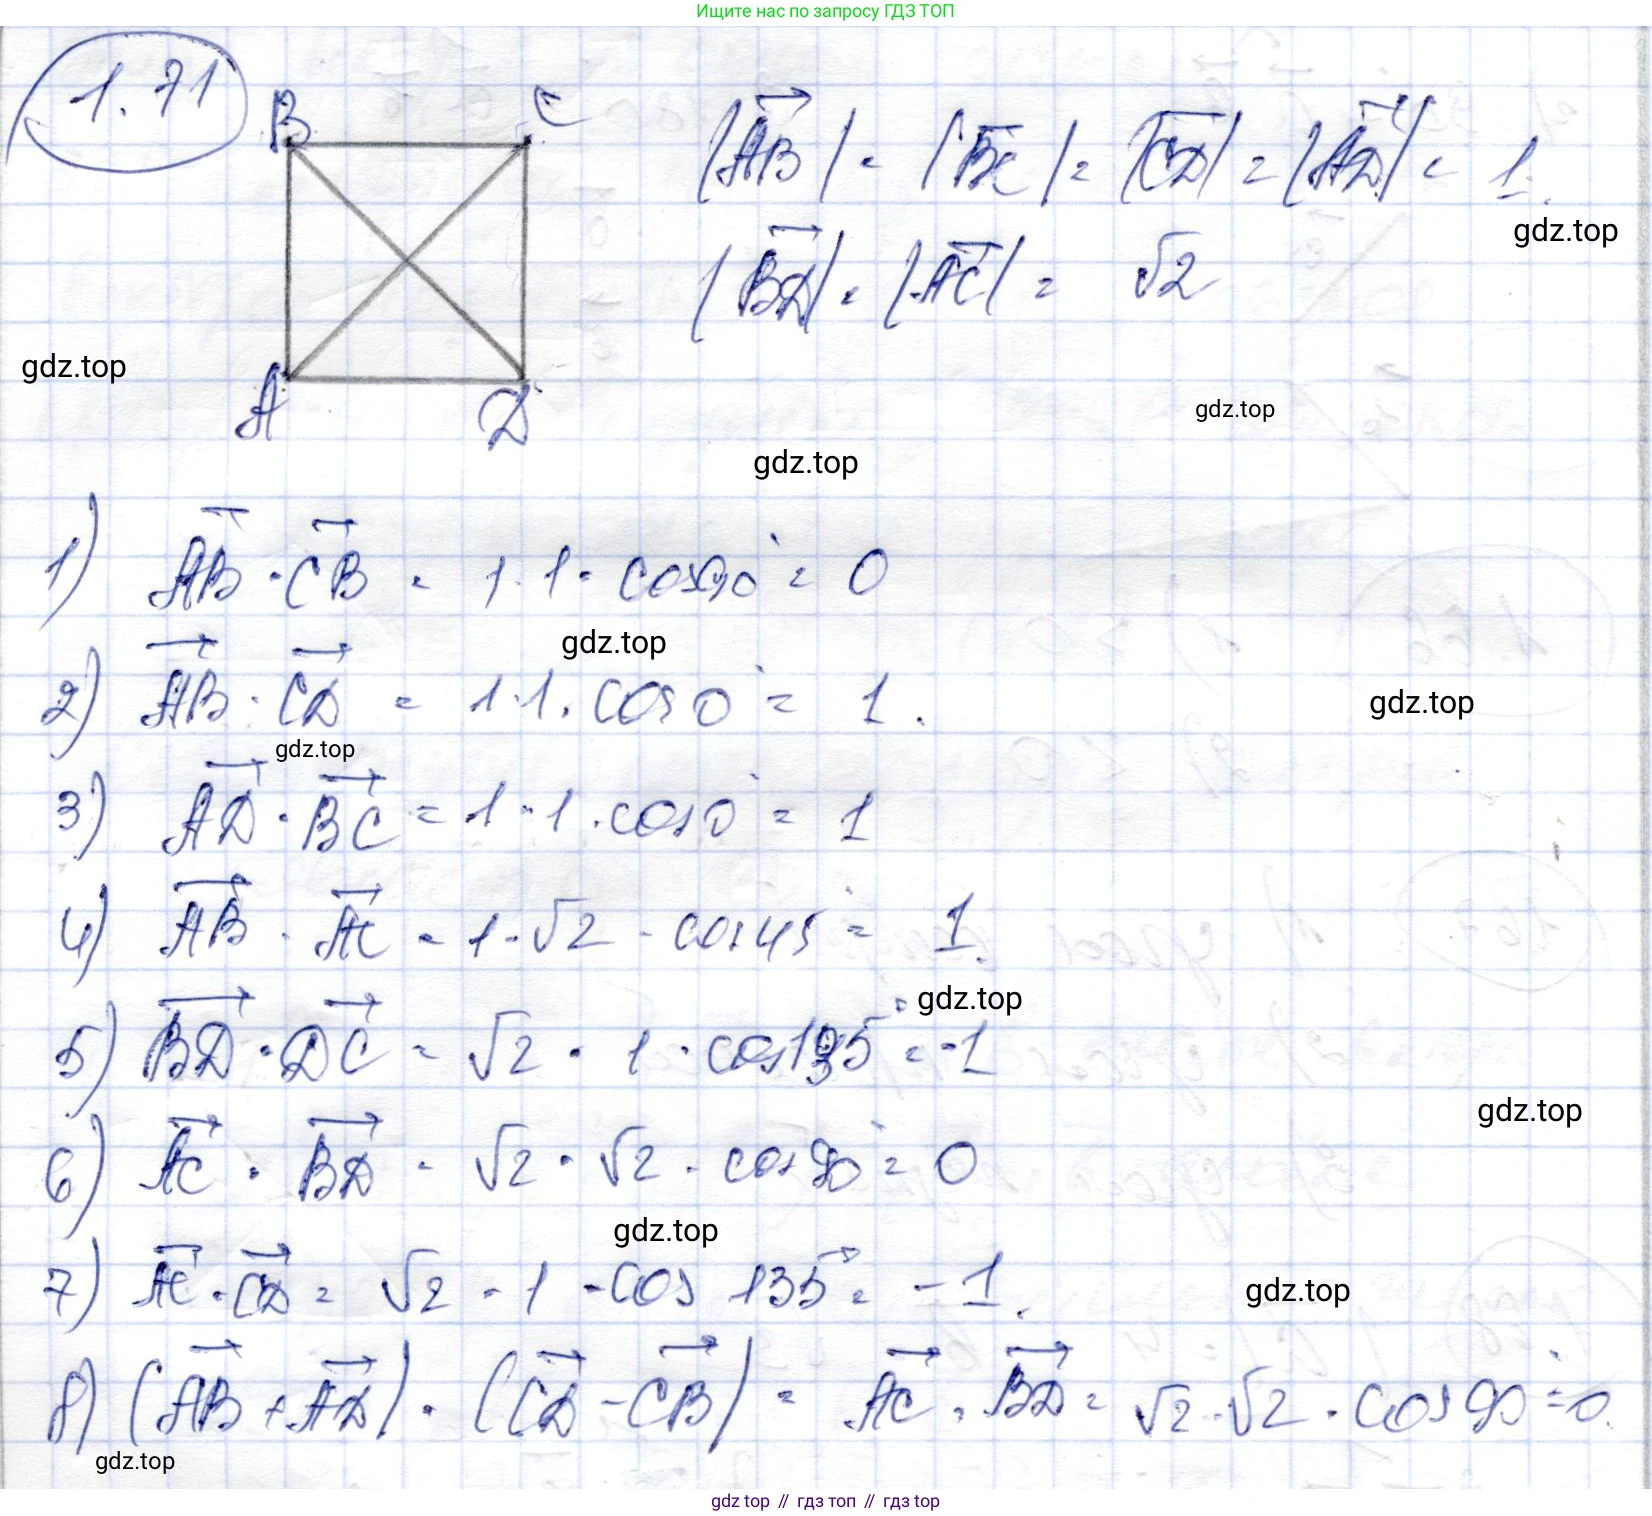 Ищите нас по запросу ГДЗ ТОП
1.71
B C
A D
|AB| = |BC| = |CD| = |AD| = 1.
gdz.top
|BD| = |AC| = √2
gdz.top
gdz.top
gdz.top
1) AB · CB = 1 · 1 · cos90° = 0
gdz.top
2) AB · CD = 1 · 1 · cos0° = 1.
gdz.top
gdz.top
3) AD · BC = 1 · 1 · cos0° = 1
4) AB · AC = 1 · √2 · cos45° = 1.
gdz.top
5) BD · DC = √2 · 1 · cos135° = -1
gdz.top
6) AC · BD = √2 · √2 · cos90° = 0
gdz.top
7) AC · CD = √2 · 1 · cos 135° = -1.
gdz.top
8) (AB + AD) · (CD - CB) = AC · BD = √2 · √2 · cos90° = 0.
gdz.top
gdz top // гдз топ // gdz top